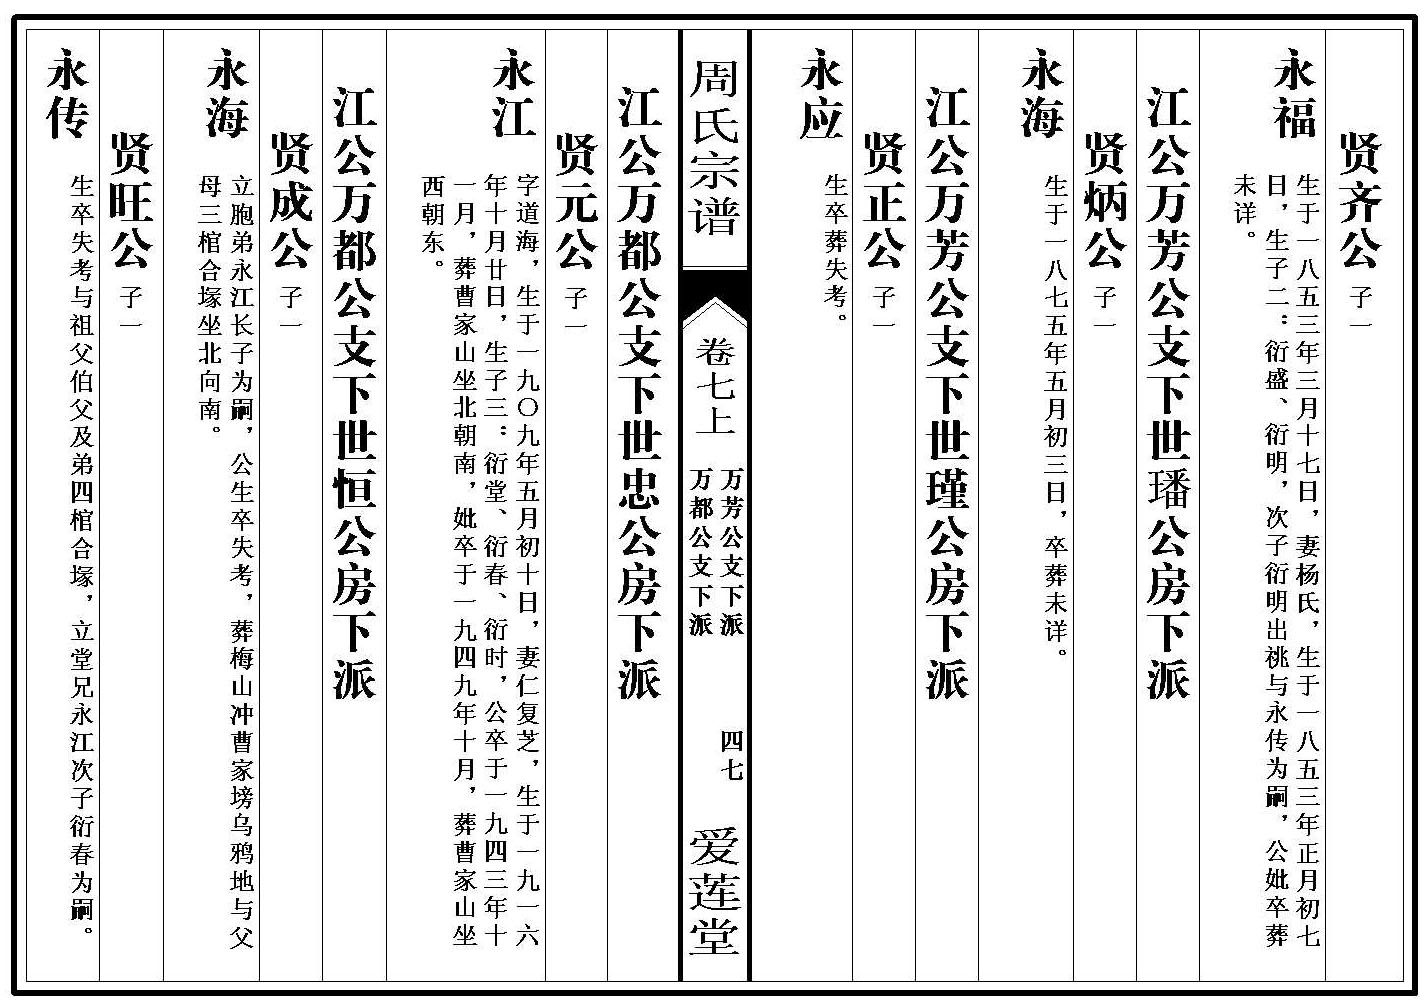 贤齐公 子一
永福
生于一八五三年三月十七日，妻杨氏，生于一八五三年正月初七
日，生子二：衍盛、衍明，次子衍明出祧与永传为嗣，公妣卒葬
未详。
江公万芳公支下世璠公房下派
贤炳公 子一
永海
生于一八七五年五月初三日，卒葬未详。
江公万芳公支下世瑾公房下派
贤正公 子一
永应
生卒葬失考。
周氏宗谱
卷七上
万芳公支下派
万都公支下派
四七
爱莲堂
江公万都公支下世忠公房下派
贤元公 子一
永江
字道海，生于一九〇九年五月初十日，妻仁复芝，生于一九一六
年十月廿日，生子三：衍堂、衍春、衍时，公卒于一九四三年十
一月，葬曹家山坐北朝南，妣卒于一九四九年十月，葬曹家山坐
西朝东。
江公万都公支下世恒公房下派
贤成公 子一
永海
立胞弟永江长子为嗣，公生卒失考，葬梅山冲曹家塝乌鸦地与父
母三棺合塚坐北向南。
贤旺公 子一
永传
生卒失考与祖父伯父及弟四棺合塚，立堂兄永江次子衍春为嗣。